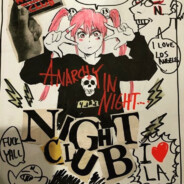 I LOVE
LOS
ANGELES
ANARCHY IN
NIGHT...
NIGHT
CLUB
FUCK
Y'ALL
I ❤
LA